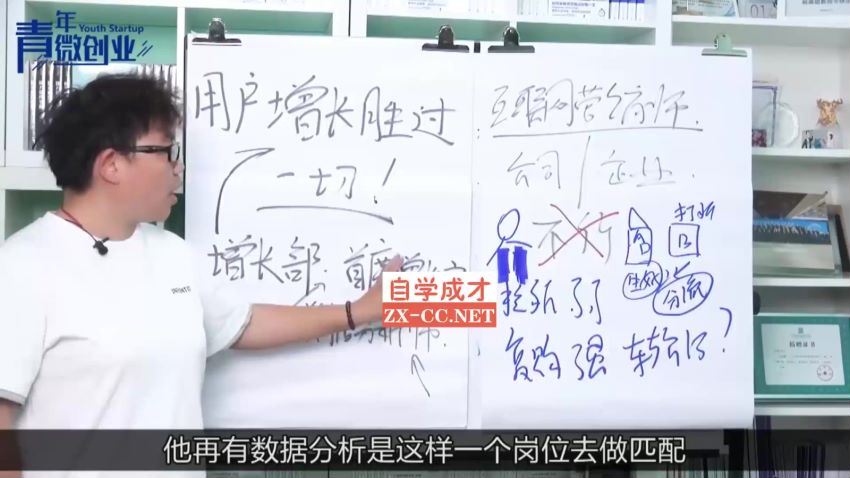 青年微创业
Youth Startup
用户增长胜过
一切！
增长部. 首席增长
互联网营销师.
公司 / 企业
不行
B
B
打折
分流
拉新弱
复购强 转介绍？
自学成才
ZX-CC.NET
捐赠证书
他再有数据分析是这样一个岗位去做匹配